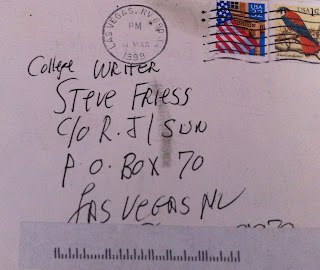 LAS VEGAS, NV
PM
MAR
1998
USA
32
USA
College WRITER
STEVE FRIESS
C/O R.J/SUN
P.O. BOX 70
LAS VEGAS NV